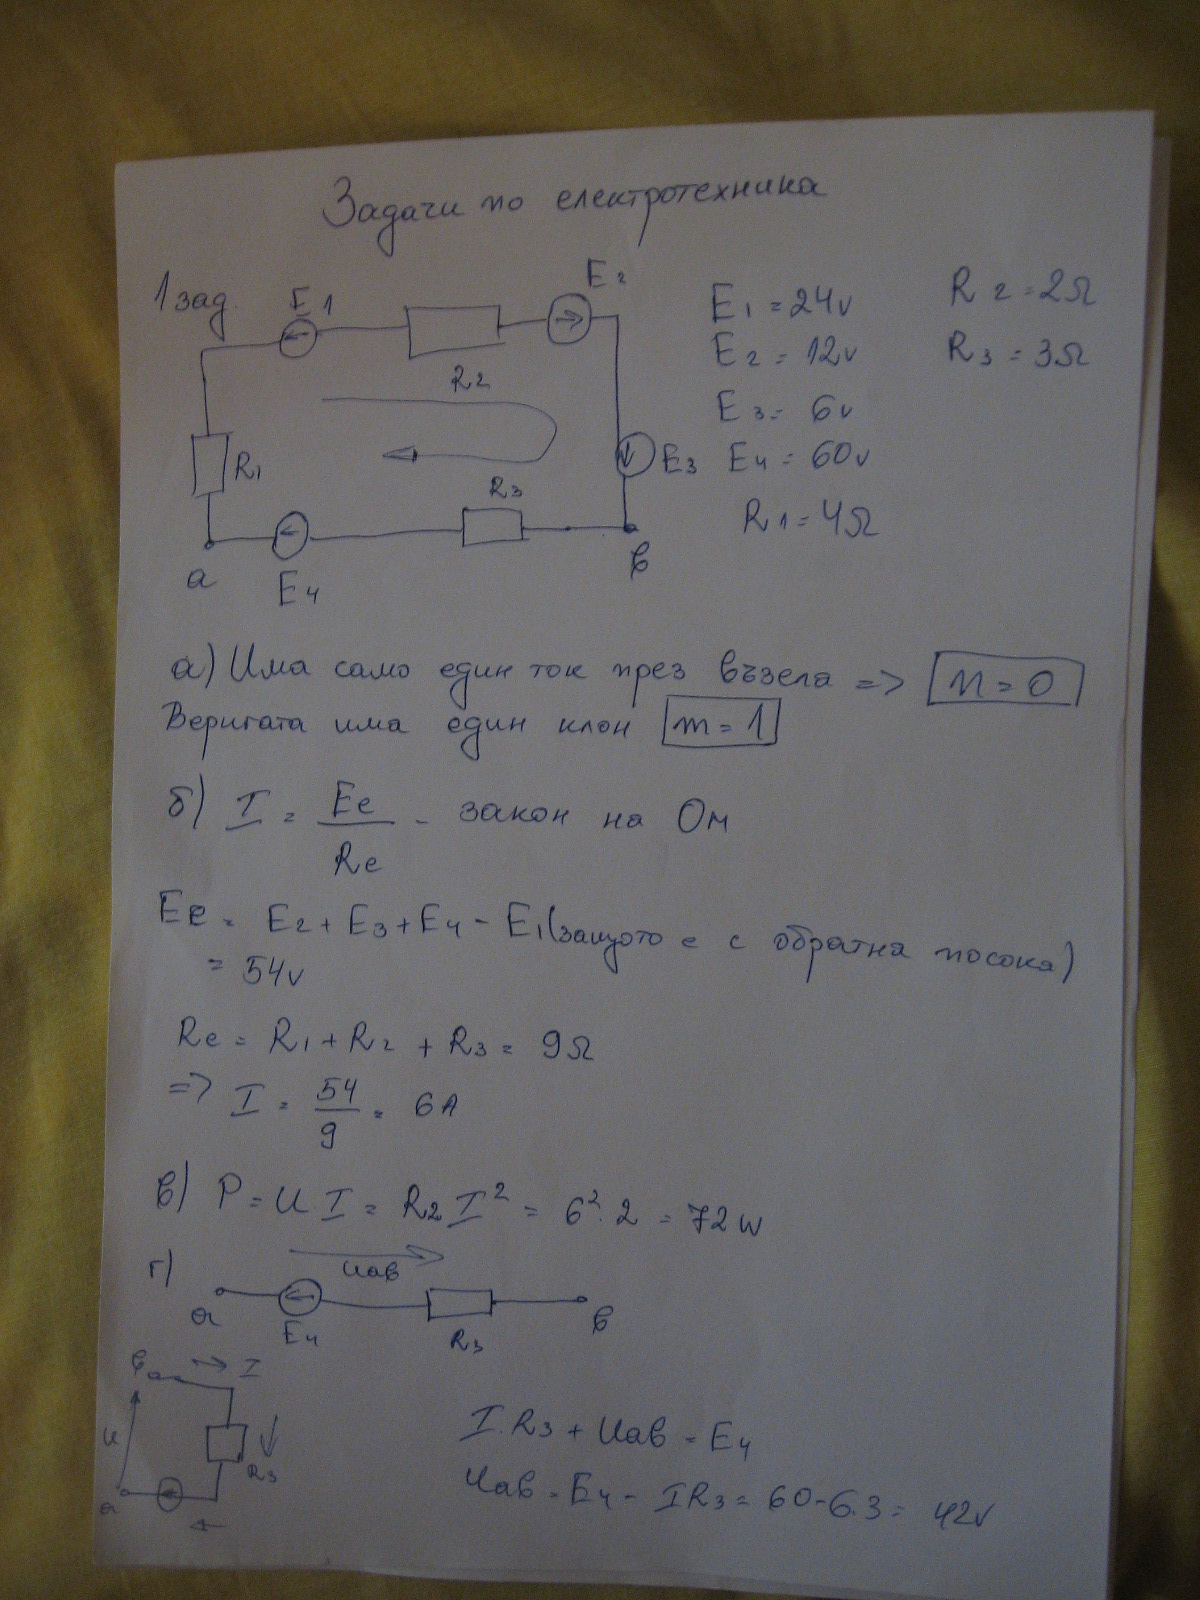 Задачи по електротехника
1 зад.
E1
E2
R2
R1
R3
E3
a
E4
в
E1 = 24v
R2 = 2Ω
E2 = 12v
R3 = 3Ω
E3 = 6v
E4 = 60v
R1 = 4Ω
а) Има само един ток през възела => n = 0
Веригата има един клон m = 1
б) I = Ee / Re - закон на Ом
Ee = E2 + E3 + E4 - E1 (защото е с обратна посока)
= 54v
Re = R1 + R2 + R3 = 9Ω
=> I = 54 / 9 = 6A
в) P = U.I = R2 I² = 6².2 = 72w
г)
Uав
a
E4
R3
в
в
I
U
R3
a
I.R3 + Uав = E4
Uав = E4 - IR3 = 60-6.3 = 42v